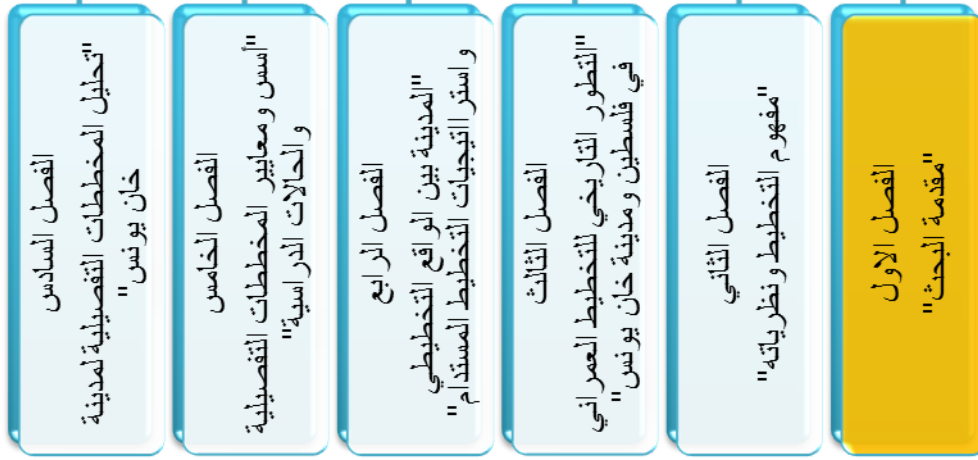 الفصل الاول
"مقدمة البحث"
الفصل الثاني
"مفهوم التخطيط ونظرياته"
الفصل الثالث
"التطور التاريخي للتخطيط العمراني
في فلسطين ومدينة خان يونس"
الفصل الرابع
"المدينة بين الواقع التخطيطي
واستراتيجيات التخطيط المستدام"
الفصل الخامس
"أسس ومعايير المخططات التفصيلية
والحالات الدراسية"
الفصل السادس
"تحليل المخططات التفصيلية لمدينة
خان يونس"